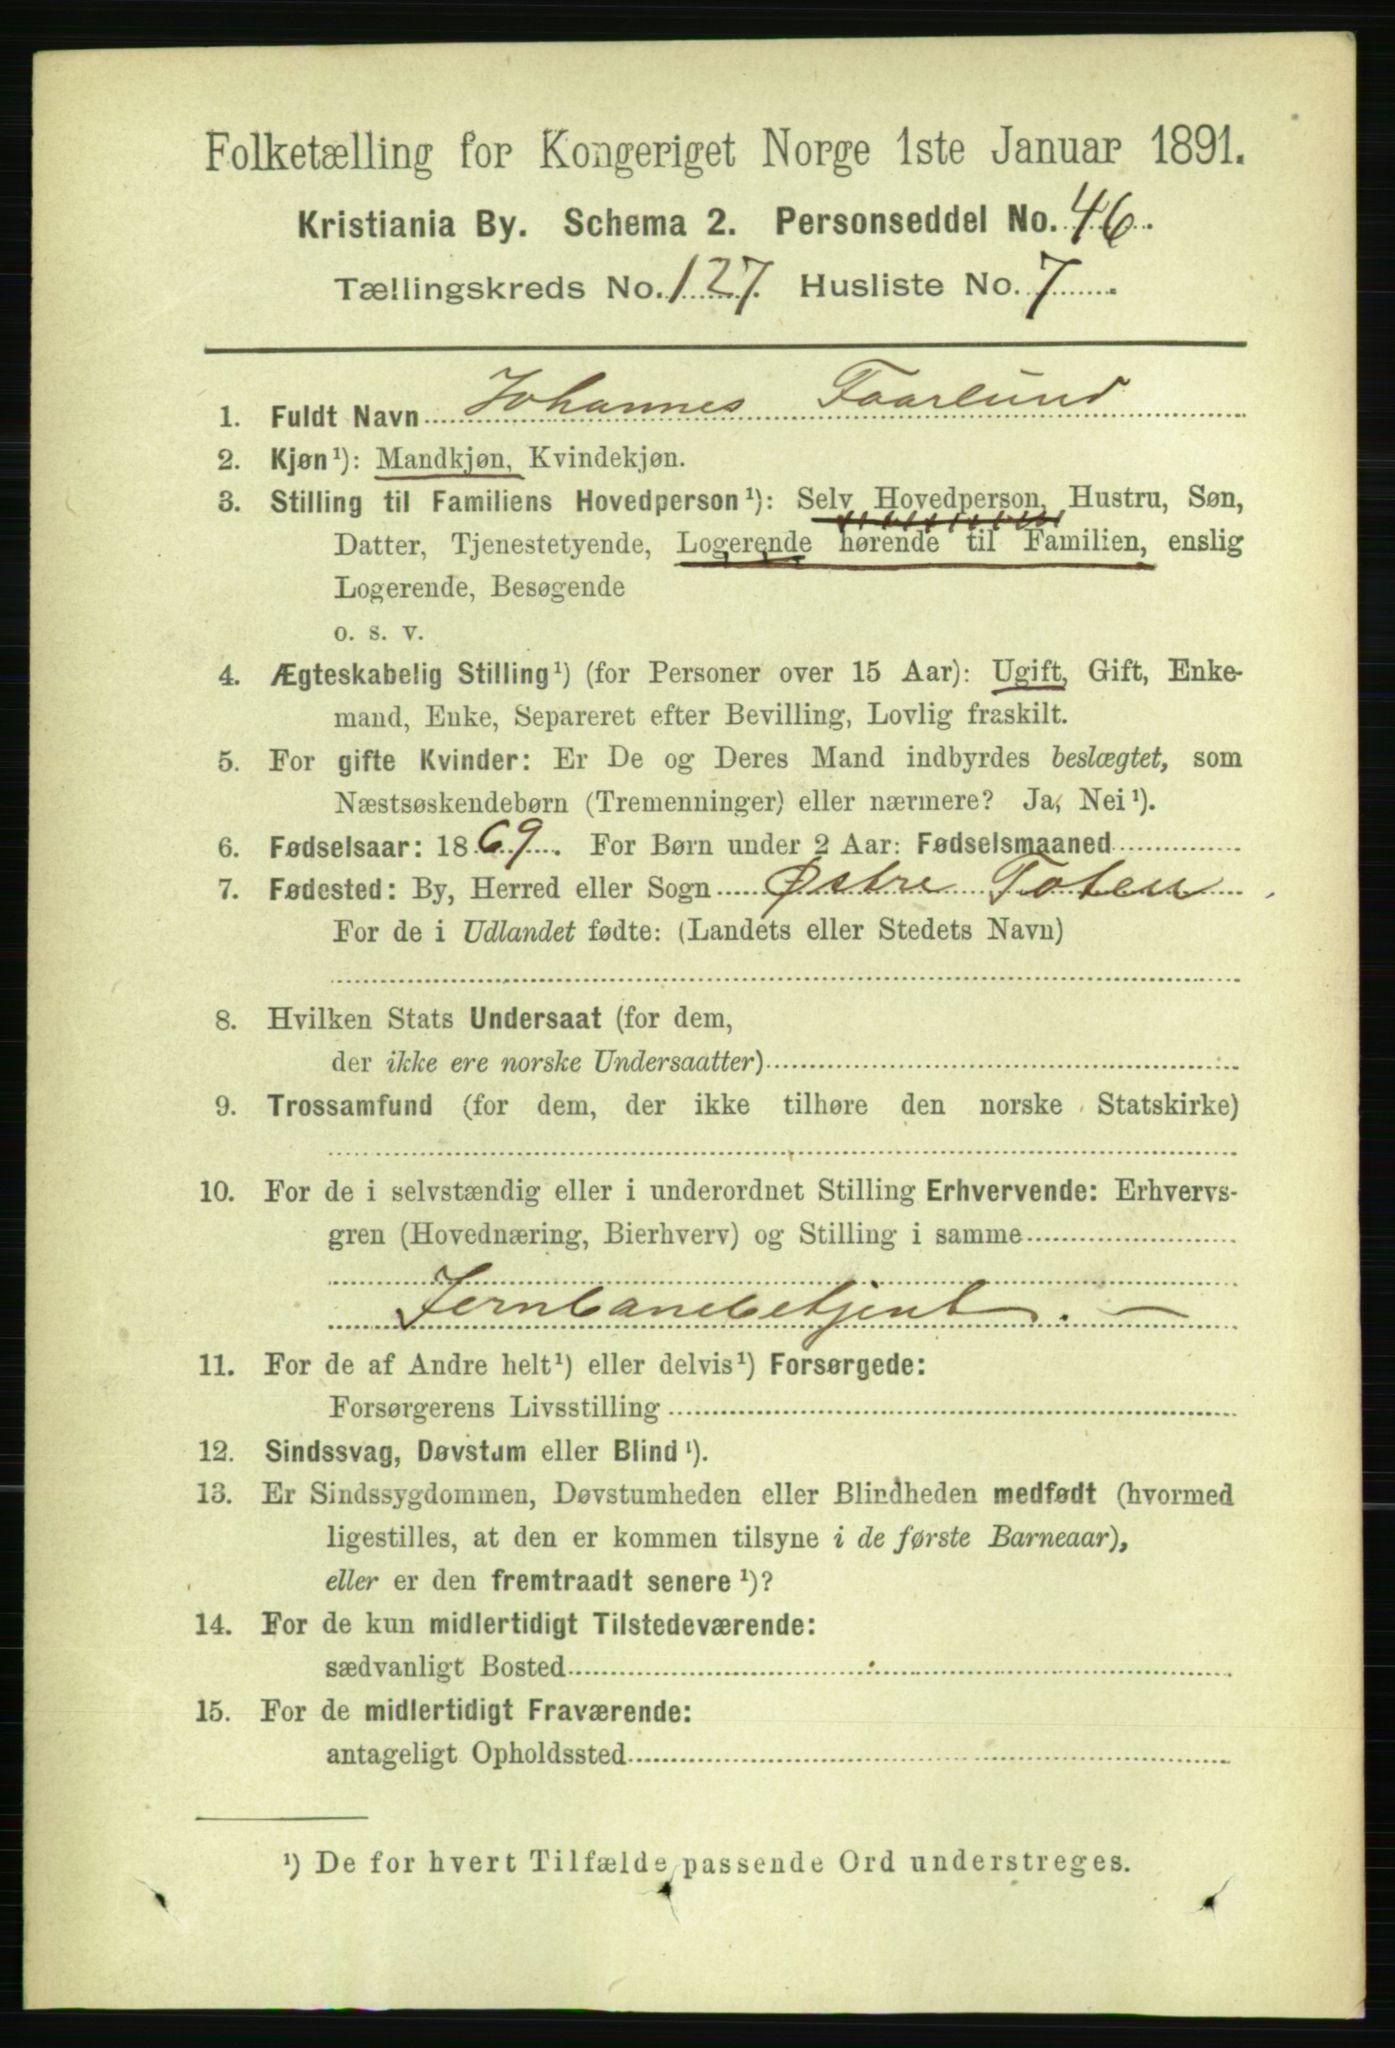 Folketælling for Kongeriget Norge 1ste Januar 1891.
Kristiania By. Schema 2. Personseddel No. 46.
Tællingskreds No. 127. Husliste No. 7
1. Fuldt Navn Johannes Faarlund
2. Kjøn¹): Mandkjøn, Kvindekjøn.
3. Stilling til Familiens Hovedperson¹): Selv Hovedperson, Hustru, Søn,
Datter, Tjenestetyende, Logerende hørende til Familien, enslig
Logerende, Besøgende
o. s. v.
4. Ægteskabelig Stilling¹) (for Personer over 15 Aar): Ugift, Gift, Enke-
mand, Enke, Separeret efter Bevilling, Lovlig fraskilt.
5. For gifte Kvinder: Er De og Deres Mand indbyrdes beslægtet, som
Næstsøskendebørn (Tremenninger) eller nærmere? Ja, Nei¹).
6. Fødselsaar: 1869. For Børn under 2 Aar: Fødselsmaaned
7. Fødested: By, Herred eller Sogn Østre Toten
For de i Udlandet fødte: (Landets eller Stedets Navn)
8. Hvilken Stats Undersaat (for dem,
der ikke ere norske Undersaatter)
9. Trossamfund (for dem, der ikke tilhøre den norske Statskirke)
10. For de i selvstændig eller i underordnet Stilling Erhvervende: Erhvervs-
gren (Hovednæring, Bierhverv) og Stilling i samme
Jernbanebetjent. —
11. For de af Andre helt¹) eller delvis¹) Forsørgede:
Forsørgerens Livsstilling
12. Sindssvag, Døvstum eller Blind¹).
13. Er Sindssygdommen, Døvstumheden eller Blindheden medfødt (hvormed
ligestilles, at den er kommen tilsyne i de første Barneaar),
eller er den fremtraadt senere¹)?
14. For de kun midlertidigt Tilstedeværende:
sædvanligt Bosted
15. For de midlertidigt Fraværende:
antageligt Opholdssted
¹) De for hvert Tilfælde passende Ord understreges.